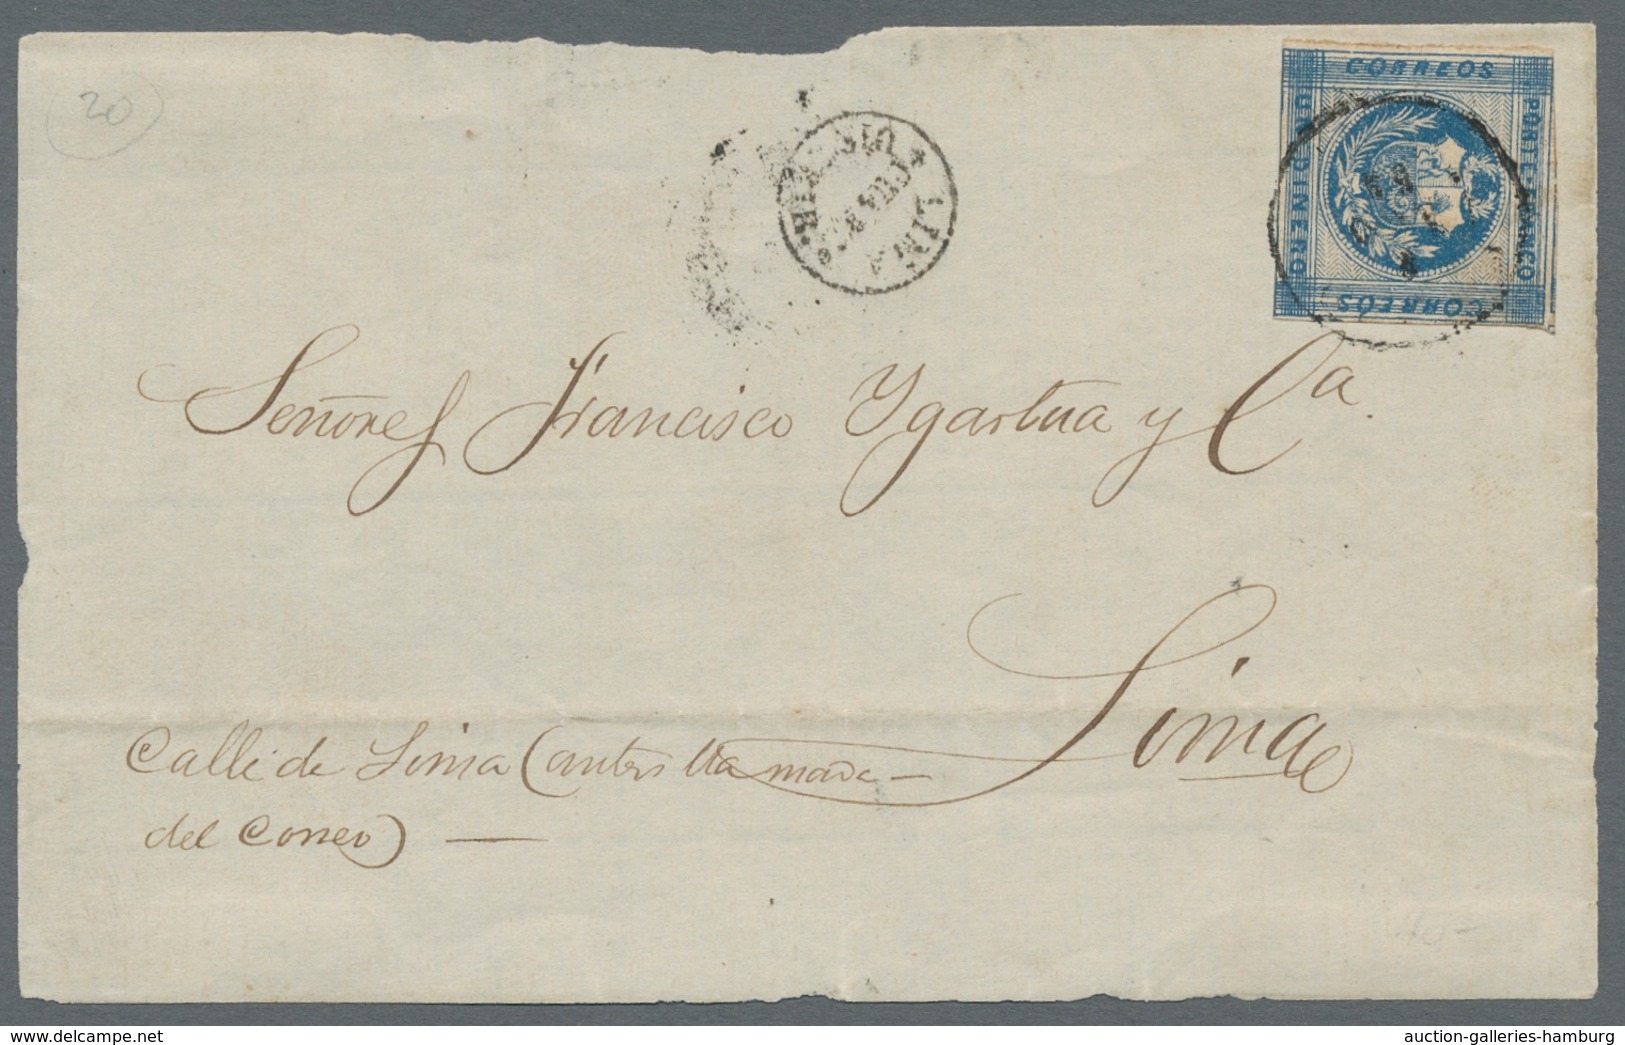 20
CORREOS
PORTE FRANCO
CORREOS
UN DINERO
LIMA
Señores Francisco Ygartua y Ca.
Lima
Calle de Lima (antes llamada —
del Correo) —
auction-galleries-hamburg